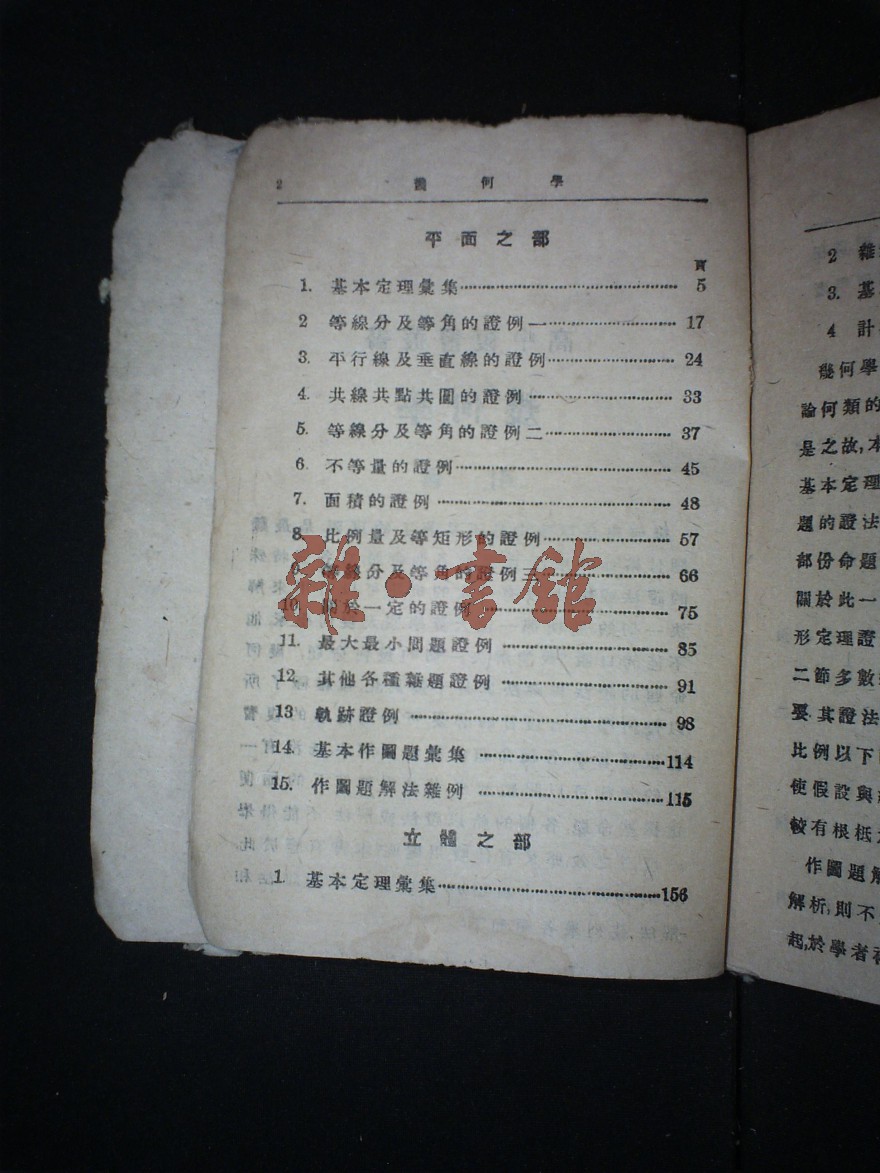 2 幾何學
平面之部
頁
1. 基本定理彙集 5
2 等線分及等角的證例一 17
3. 平行線及垂直線的證例 24
4. 共線共點共圓的證例 33
5. 等線分及等角的證例二 37
6. 不等量的證例 45
7. 面積的證例 48
8. 比例量及等矩形的證例 57
9. 等線分及等角的證例三 66
10. 關於一定的證例 75
11. 最大最小問題證例 85
12. 其他各種雜題證例 91
13 軌跡證例 98
14. 基本作圖題彙集 114
15. 作圖題解法雜例 115
立體之部
1. 基本定理彙集 156
雜·書館
2 雜
3. 基
4 計
幾何學
論何類的
是之故,本
基本定理
題的證法
部份命題
關於此一
形定理證
二節多數
要.其證法
比例以下
使假設與
較有根柢
作圖題解
解析,則不
起,於學者